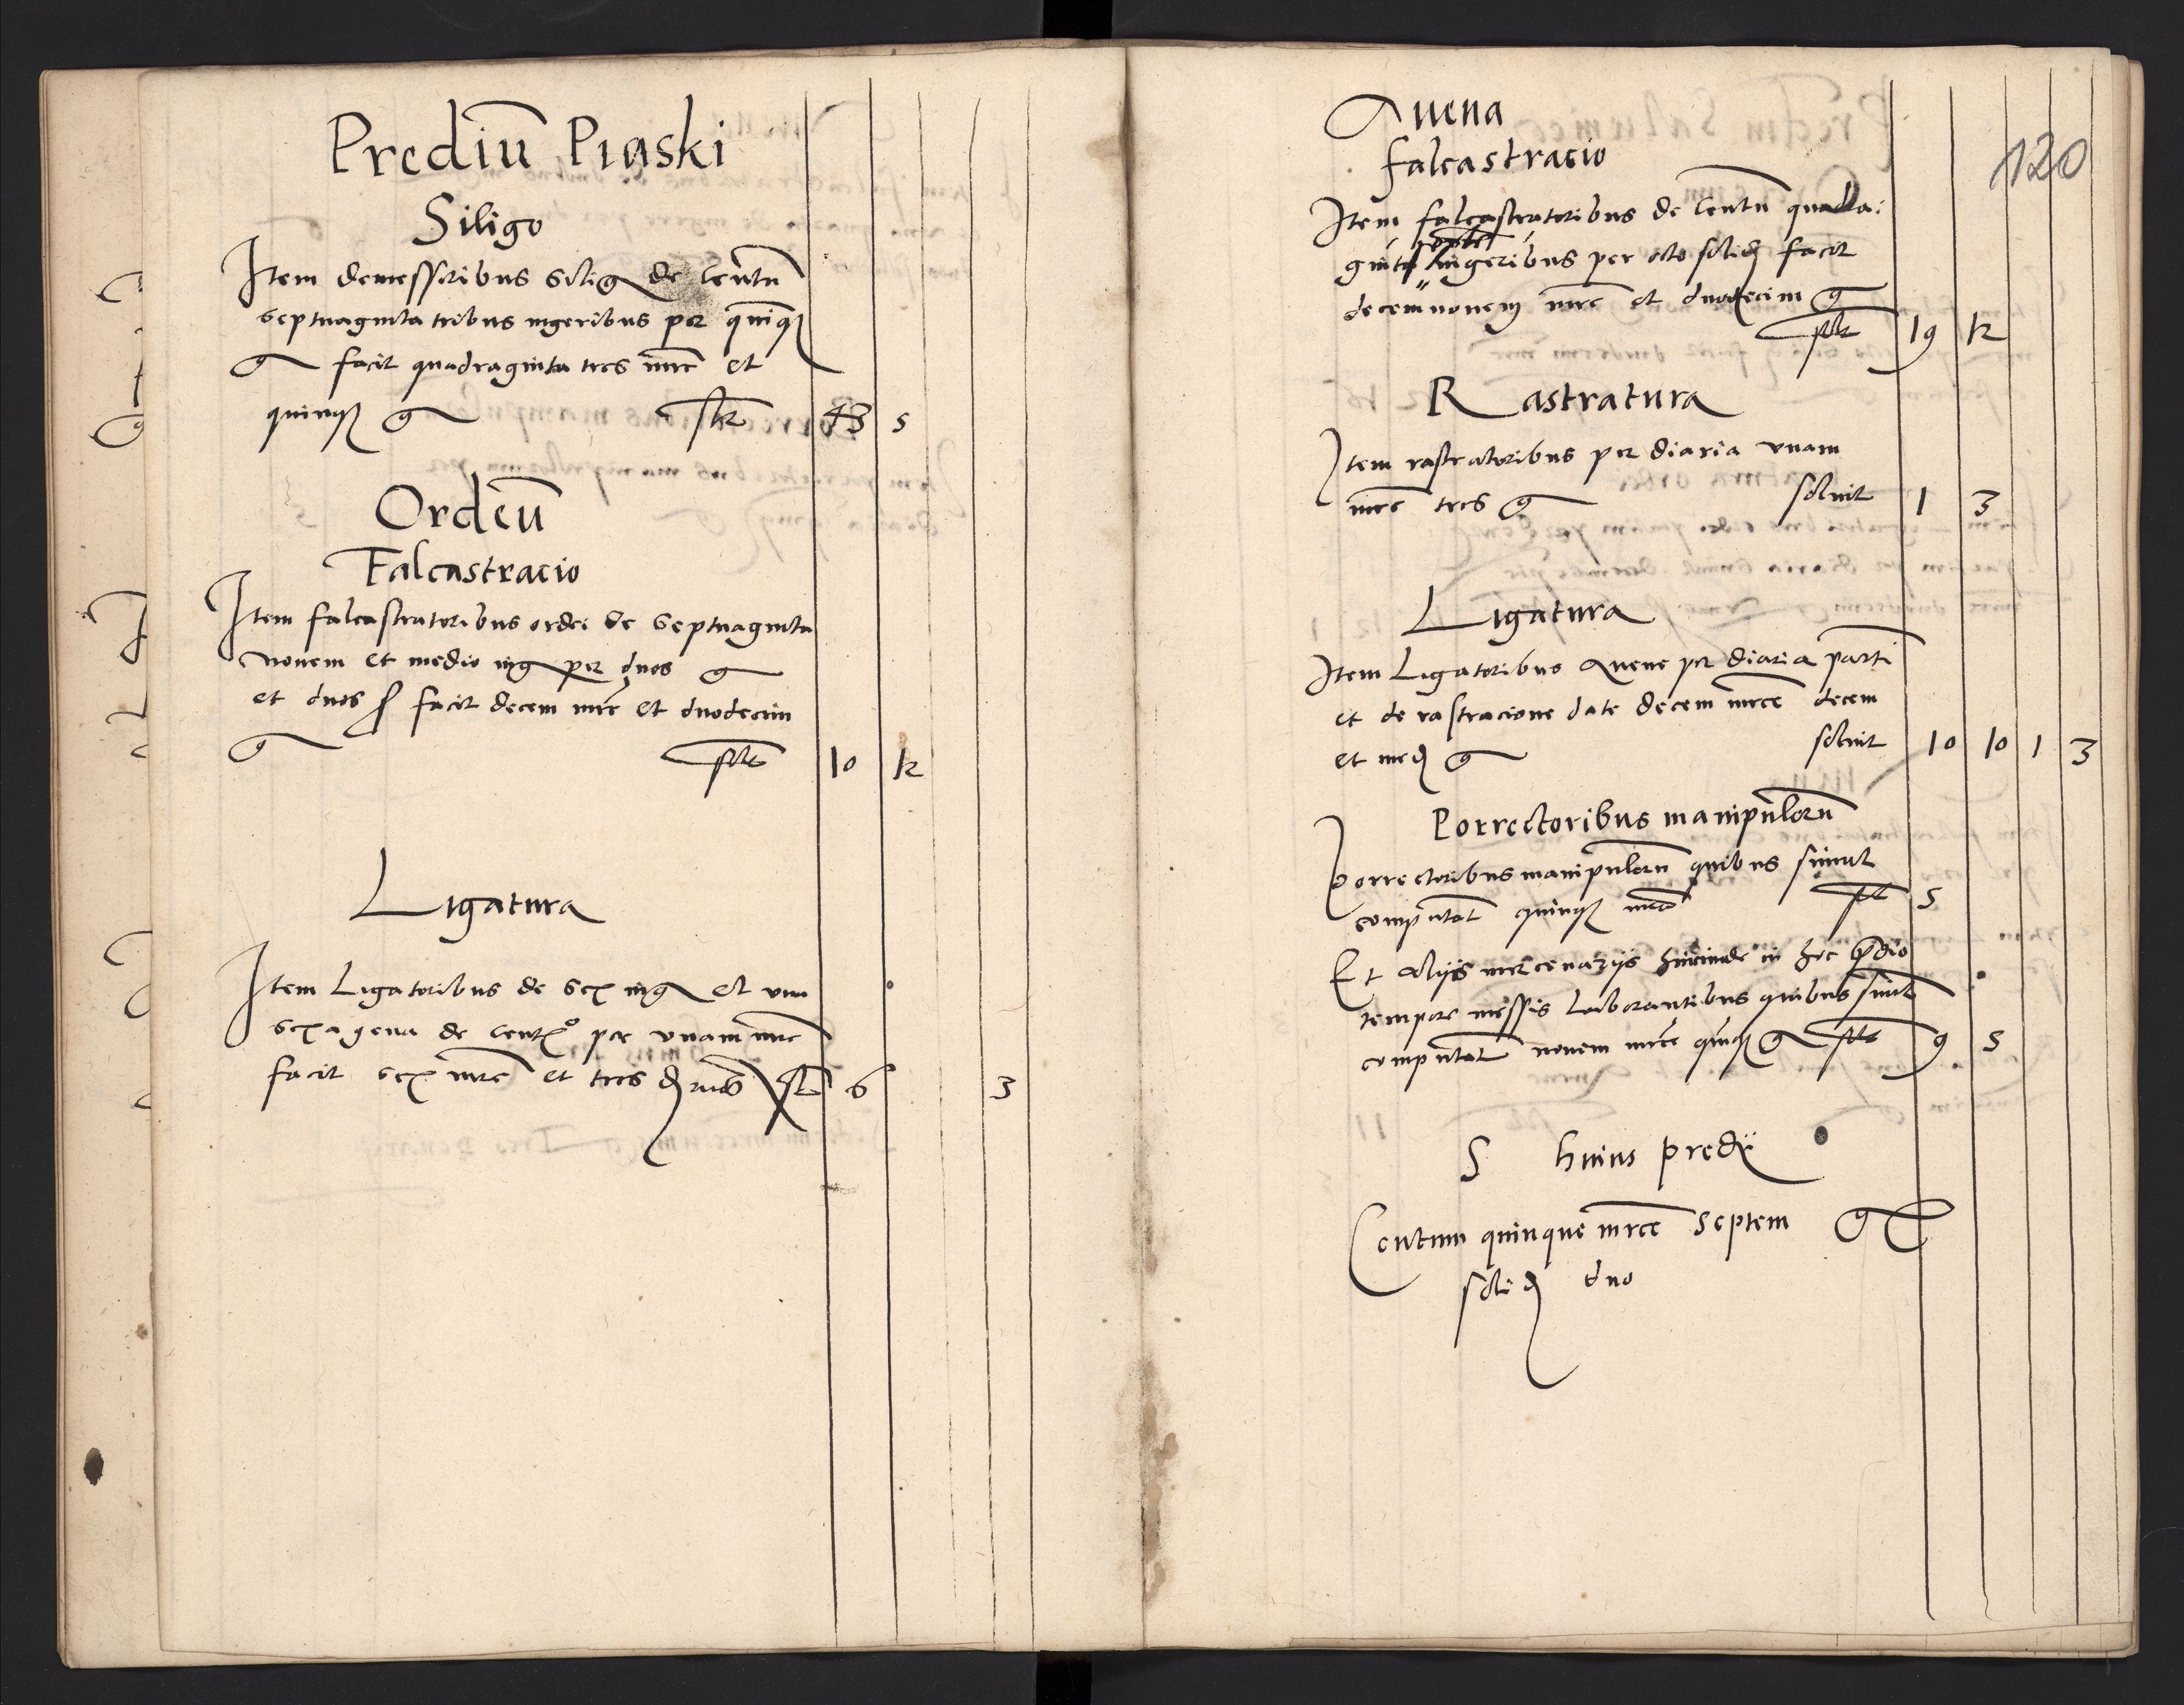 Prediū Piaski
Siligo
Item demessoribus silig de Centū
septuaginta tribus iugeribus per quinqȝ
g facit quadraginta tres mrc et
quinqȝ g 43 5
Ordeū
Falcastracio
Item falcastratoribus ordei de septuaginta
novem et medio iug per duos g
et duos s facit decem mrc et duodecim
g 10 12
Ligatura
Item Ligatoribus de sex iug et una
sexagena de per unam mrc
facit sex mrc et tres 6 3
120
Avena
falcastracio
Item falcastratoribus de Centū quadra:
ginta iugeribus per octo solid facit
decem novem mrc et duodecim g
19 12
Rastratura
Item rastratoribus per diaria unam
mrc tres g solvit 1 3
Ligatura
Item Ligatoribus avene per diaria parti
et de rastracione date decem mrce decem
et med g solvit 10 10 1 3
Porrectoribus manipulorū
Porrectoribus manipulorū quibus simul
computat quinqȝ 5
Et alijs mercenarijs hincinde in hoc predio
tempore messis laborantibus quibus simul
computat novem mrce quinqȝ g 9 5
S huius predij
Centum quinque mrce septem g
solid duo